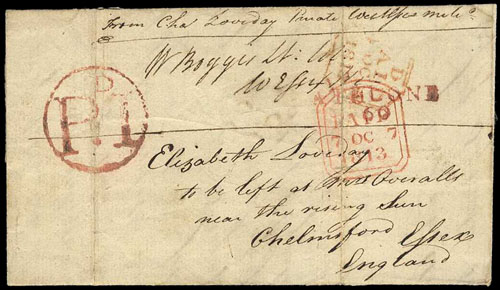 From Cha Loveday Private West Essex mila
W Boggis Lt. Col
W Essex
PD
P1
ATHLONE
60
PAID
7 OC 7
1813
Elizabeth Loveday
to be left at Mrs Overalls
near the rising Sun
Chelmsford Essex
England